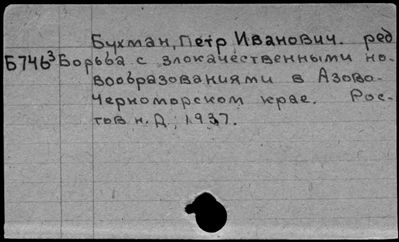 Бухман, Петр Иванович. ред
Б746³ Борьба с злокачественными но-
вообразованиями в Азово-
Черноморском крае. Рос-
тов н.Д, 1937.